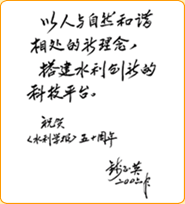 以人与自然和谐
相处的新理念，
搭建水利创新的
科技平台。
祝贺
《水利学报》五十周年
钱正英
2002年